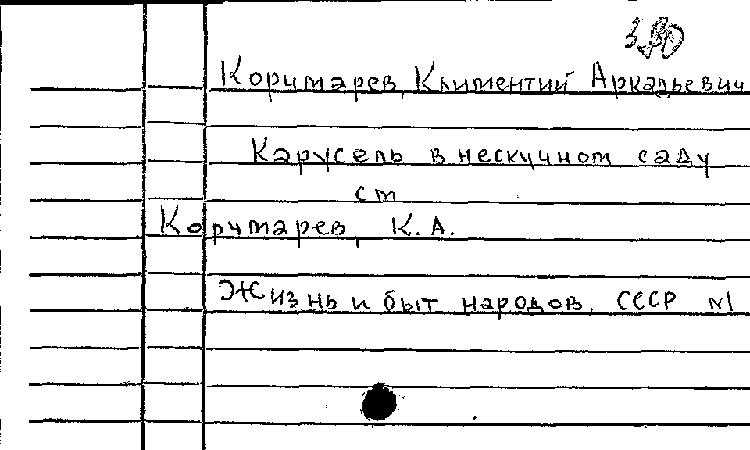 Корчмарев, Климентий Аркадьевич
Карусель в нескучном саду
ст
Корчмарев, К.А.
Жизнь и быт народов СССР №1